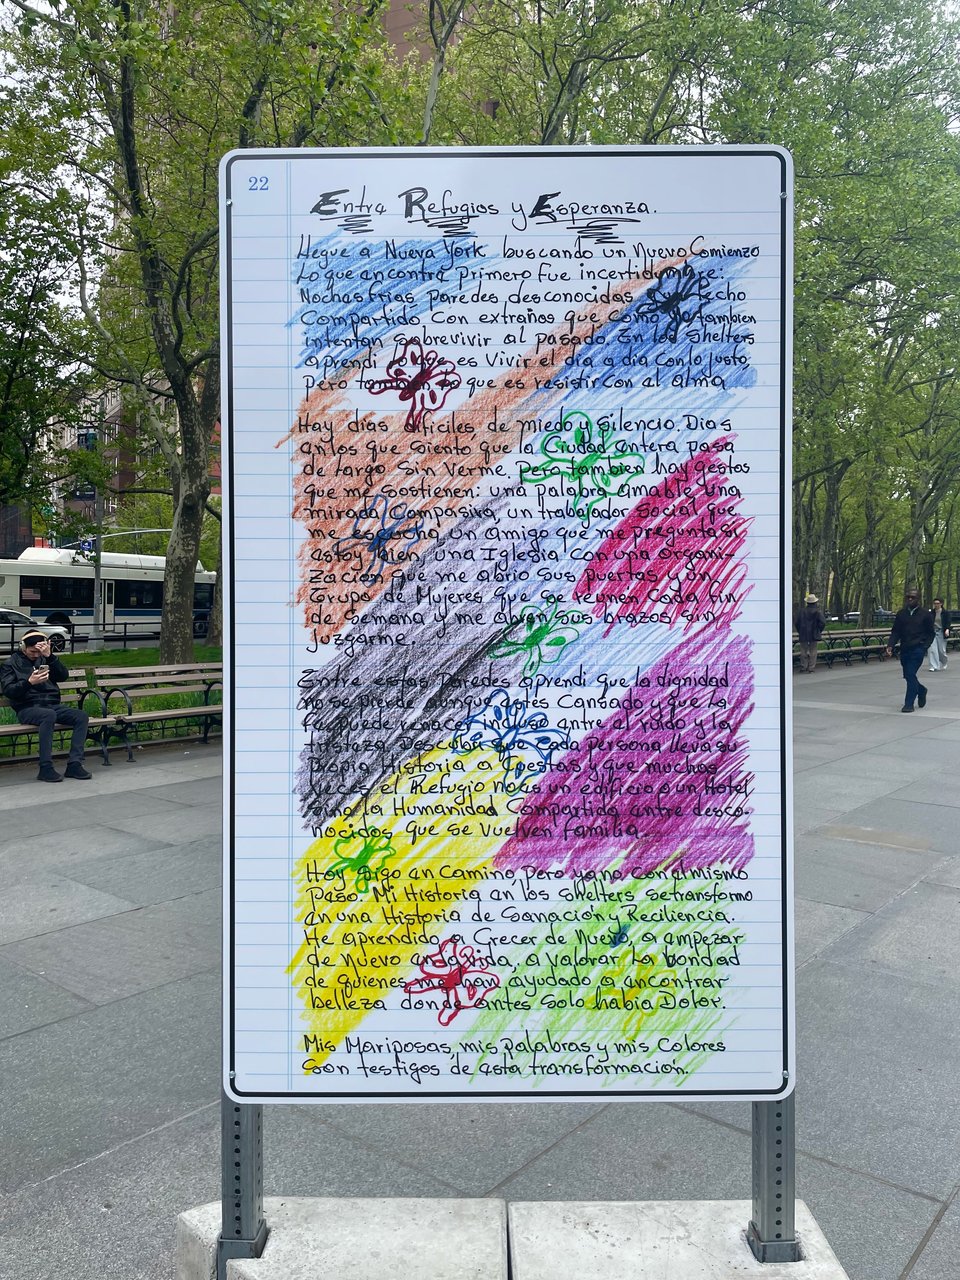 22
Entre Refugios y Esperanza.
Llegue a Nueva York buscando un Nuevo Comienzo
Lo que encontré Primero fue incertidumbre:
Noches frias, paredes desconocidas y un techo
Compartido Con extraños que como yo tambien
intentan sobrevivir al pasado. En los Shelters
aprendi lo que es Vivir el dia a dia con lo justo,
Pero tambien lo que es resistir con el alma
Hay dias dificiles de miedo y silencio. Dias
en los que siento que la Ciudad entera pasa
de largo Sin Verme. Pero tambien hay gestos
que me Sostienen: una palabra amable una
mirada Compasiva, un trabajador Social que
me escucha un amigo que me pregunta si
estoy bien, una Iglesia Con una organi-
zación que me abrio sus puertas y un
Grupo de Mujeres que se reunen Cada fin
de Semana y me abren sus brazos sin
juzgarme.
Entre estas Paredes aprendi que la dignidad
no se pierde aunque estes Cansado y que la
fe puede renacer incluso entre el ruido y la
tristeza. Descubri que Cada persona lleva su
Propia Historia a Cuestas y que muchas
Veces el Refugio no es un edificio o un Hotel
sino la Humanidad Compartida entre desco-
nocidos que se vuelven familia.
Hoy sigo en Camino, Pero ya no con el mismo
Peso. Mi Historia en los Shelters se transformo
en una Historia de Sanación y Reciliencia.
He aprendido a Crecer de Nuevo, a empezar
de nuevo en la vida, a valorar la bondad
de quienes me han ayudado a encontrar
belleza donde antes Solo habia Dolor.
Mis Mariposas, mis palabras y mis Colores
Son testigos de esta transformación.